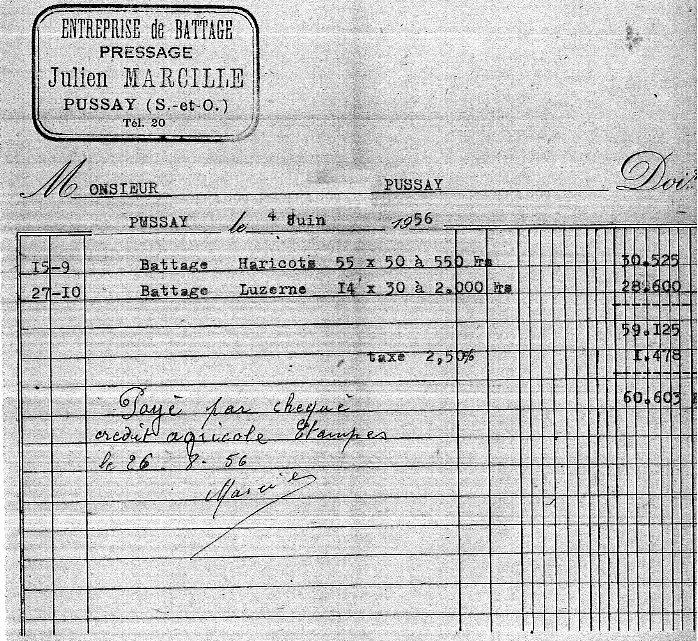 ENTREPRISE de BATTAGE
PRESSAGE
Julien MARCILLE
PUSSAY (S.-et-O.)
Tél. 20
MONSIEUR PUSSAY Doit
PUSSAY le 4 Juin 1956
15-9 Battage Haricots 55 x 50 à 550 Frs 30.525
27-10 Battage Luzerne 14 x 30 à 2.000 Frs 28.600
59.125
taxe 2,50% 1.478
60.603
Payé par chèque
crédit agricole Etampes
le 26 - 8 - 56